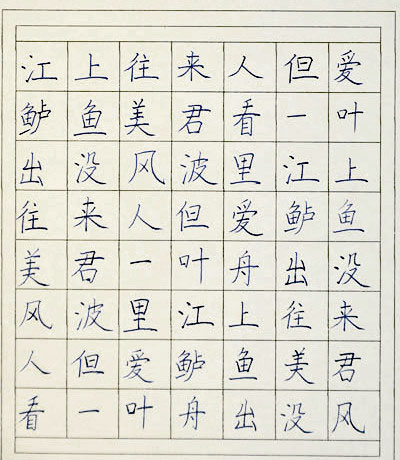 江上往来人但爱
鲈鱼美君看一叶
出没风波里江上
往来人但爱鲈鱼
美君一叶舟出没
风波里江上往来
人但爱鲈鱼美君
看一叶舟出没风